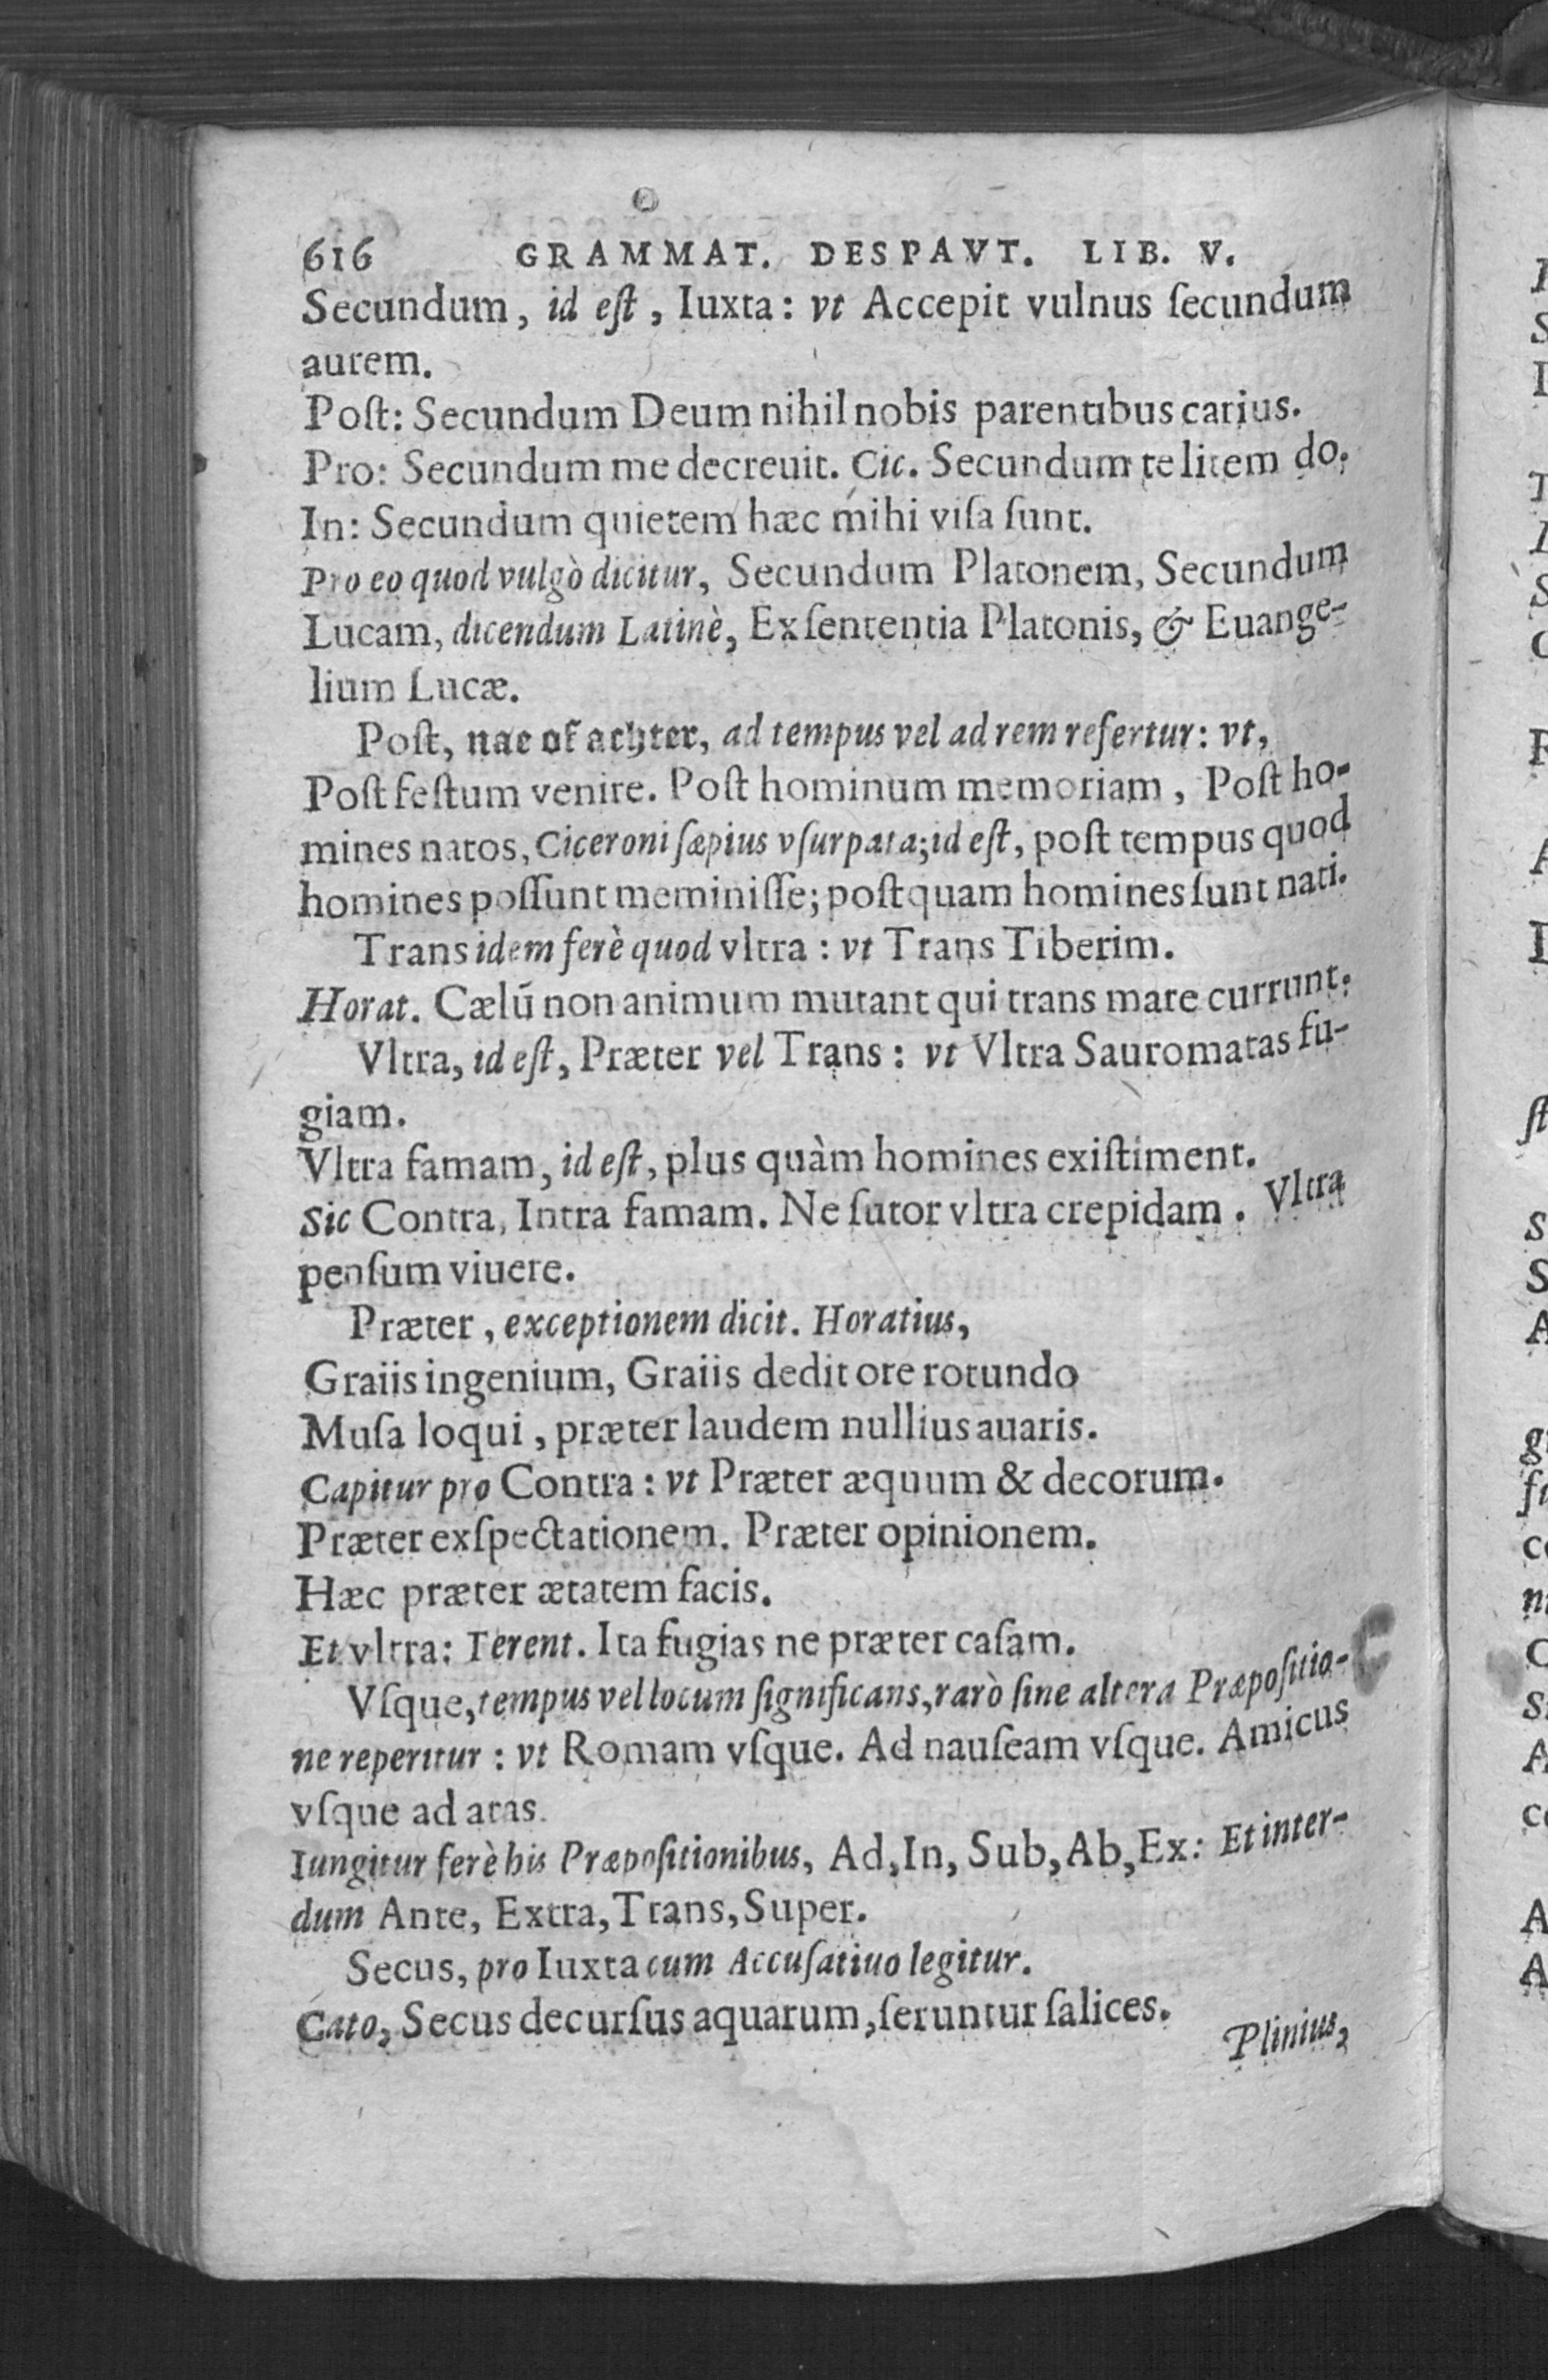 616 GRAMMAT. DESPAVT. LIB. V.
Secundum, id eſt, Iuxta: vt Accepit vulnus ſecundum
aurem.
Poſt: Secundum Deum nihil nobis parentibus carius.
Pro: Secundum me decreuit. Cic. Secundum te litem do.
In: Secundum quietem hæc mihi viſa ſunt.
Pro eo quod vulgò dicitur, Secundum Platonem, Secundum
Lucam, dicendum Latinè, Ex ſententia Platonis, & Euange-
lium Lucæ.
Poſt, nae of achter, ad tempus vel ad rem refertur: vt,
Poſt feſtum venire. Poſt hominum memoriam, Poſt ho-
mines natos, Ciceroni ſæpius vſurpata; id eſt, poſt tempus quod
homines poſſunt meminiſſe; poſtquam homines ſunt nati.
Trans idem ferè quod vltra: vt Trans Tiberim.
Horat. Cælū non animum mutant qui trans mare currunt.
Vltra, id eſt, Præter vel Trans: vt Vltra Sauromatas fu-
giam.
Vltra famam, id eſt, plus quàm homines exiſtiment.
Sic Contra, Intra famam. Ne ſutor vltra crepidam. Vltra
penſum viuere.
Præter, exceptionem dicit. Horatius,
Graiis ingenium, Graiis dedit ore rotundo
Muſa loqui, præter laudem nullius auaris.
Capitur pro Contra: vt Præter æquum & decorum.
Præter exſpectationem. Præter opinionem.
Hæc præter ætatem facis.
Et vltra: Terent. Ita fugias ne præter caſam.
Vſque, tempus vel locum ſignificans, rarò ſine altera Præpoſitio-
ne reperitur: vt Romam vſque. Ad nauſeam vſque. Amicus
vſque ad aras.
Iungitur ferè his Præpoſitionibus, Ad, In, Sub, Ab, Ex: Et inter-
dum Ante, Extra, Trans, Super.
Secus, pro Iuxta cum Accuſatiuo legitur.
Cato, Secus decurſus aquarum, ſeruntur ſalices.
Plinius,